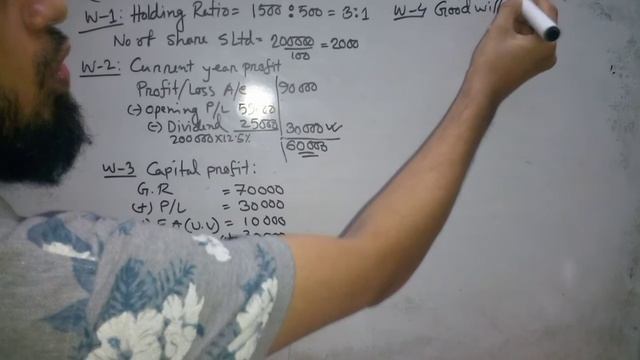 W-1: Holding Ratio = 1500 : 500 = 3:1
W-4 Good will
No of share S Ltd = 200000/100 = 2000
W-2: Current year profit
Profit/Loss A/c 90000
(-) Opening P/L
(-) Dividend 25000 30000
200000X12.5%
60000
W-3 Capital profit:
G.R = 70000
(+) P/L = 30000
A (U.V) = 10000